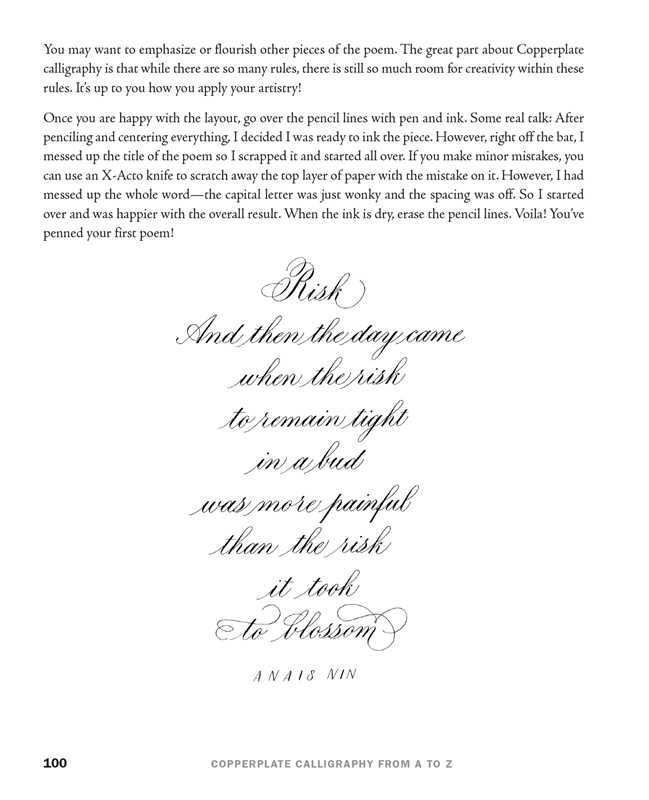 You may want to emphasize or flourish other pieces of the poem. The great part about Copperplate
calligraphy is that while there are so many rules, there is still so much room for creativity within these
rules. It's up to you how you apply your artistry!
Once you are happy with the layout, go over the pencil lines with pen and ink. Some real talk: After
penciling and centering everything, I decided I was ready to ink the piece. However, right off the bat, I
messed up the title of the poem so I scrapped it and started all over. If you make minor mistakes, you
can use an X-Acto knife to scratch away the top layer of paper with the mistake on it. However, I had
messed up the whole word—the capital letter was just wonky and the spacing was off. So I started
over and was happier with the overall result. When the ink is dry, erase the pencil lines. Voila! You've
penned your first poem!
Risk
And then the day came
when the risk
to remain tight
in a bud
was more painful
than the risk
it took
to blossom
ANAIS NIN
100 COPPERPLATE CALLIGRAPHY FROM A TO Z